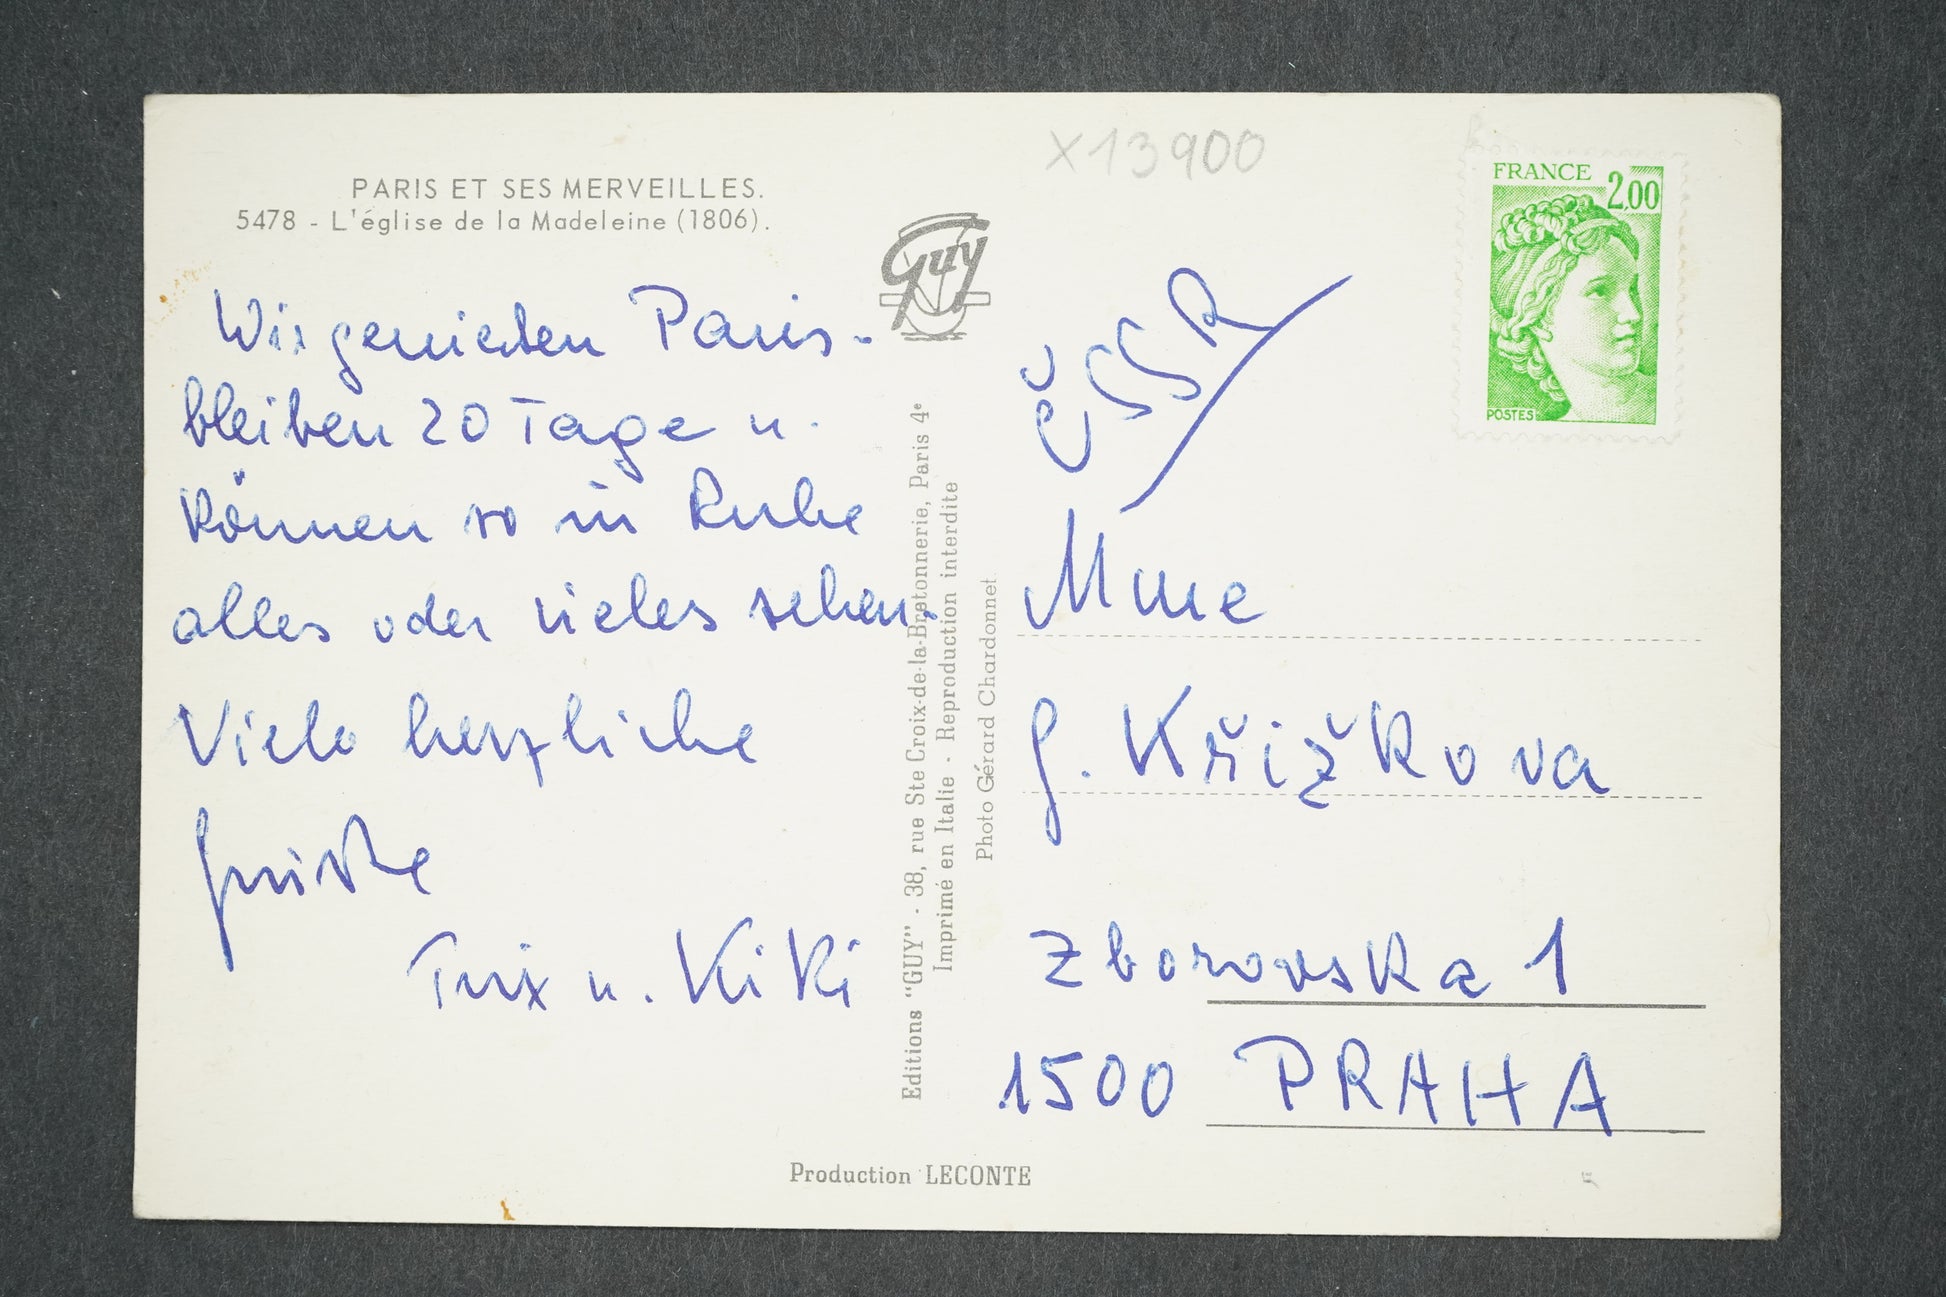 PARIS ET SES MERVEILLES.
5478 - L'église de la Madeleine (1806).
Wir genießen Paris -
bleiben 20 Tage u.
können so in Ruhe
alles oder vieles sehen.
Viele herzliche
Grüße
Trix u. Kiki
Guy
Editions "GUY" - 38, rue Ste Croix-de-la-Bretonnerie, Paris 4e
Imprimé en Italie - Reproduction interdite
Photo Gérard Chardonnet
X13900
FRANCE 2,00
POSTES
ČSSR
Mme
G. Křižkova
Zborovska 1
1500 PRAHA
Production LECONTE